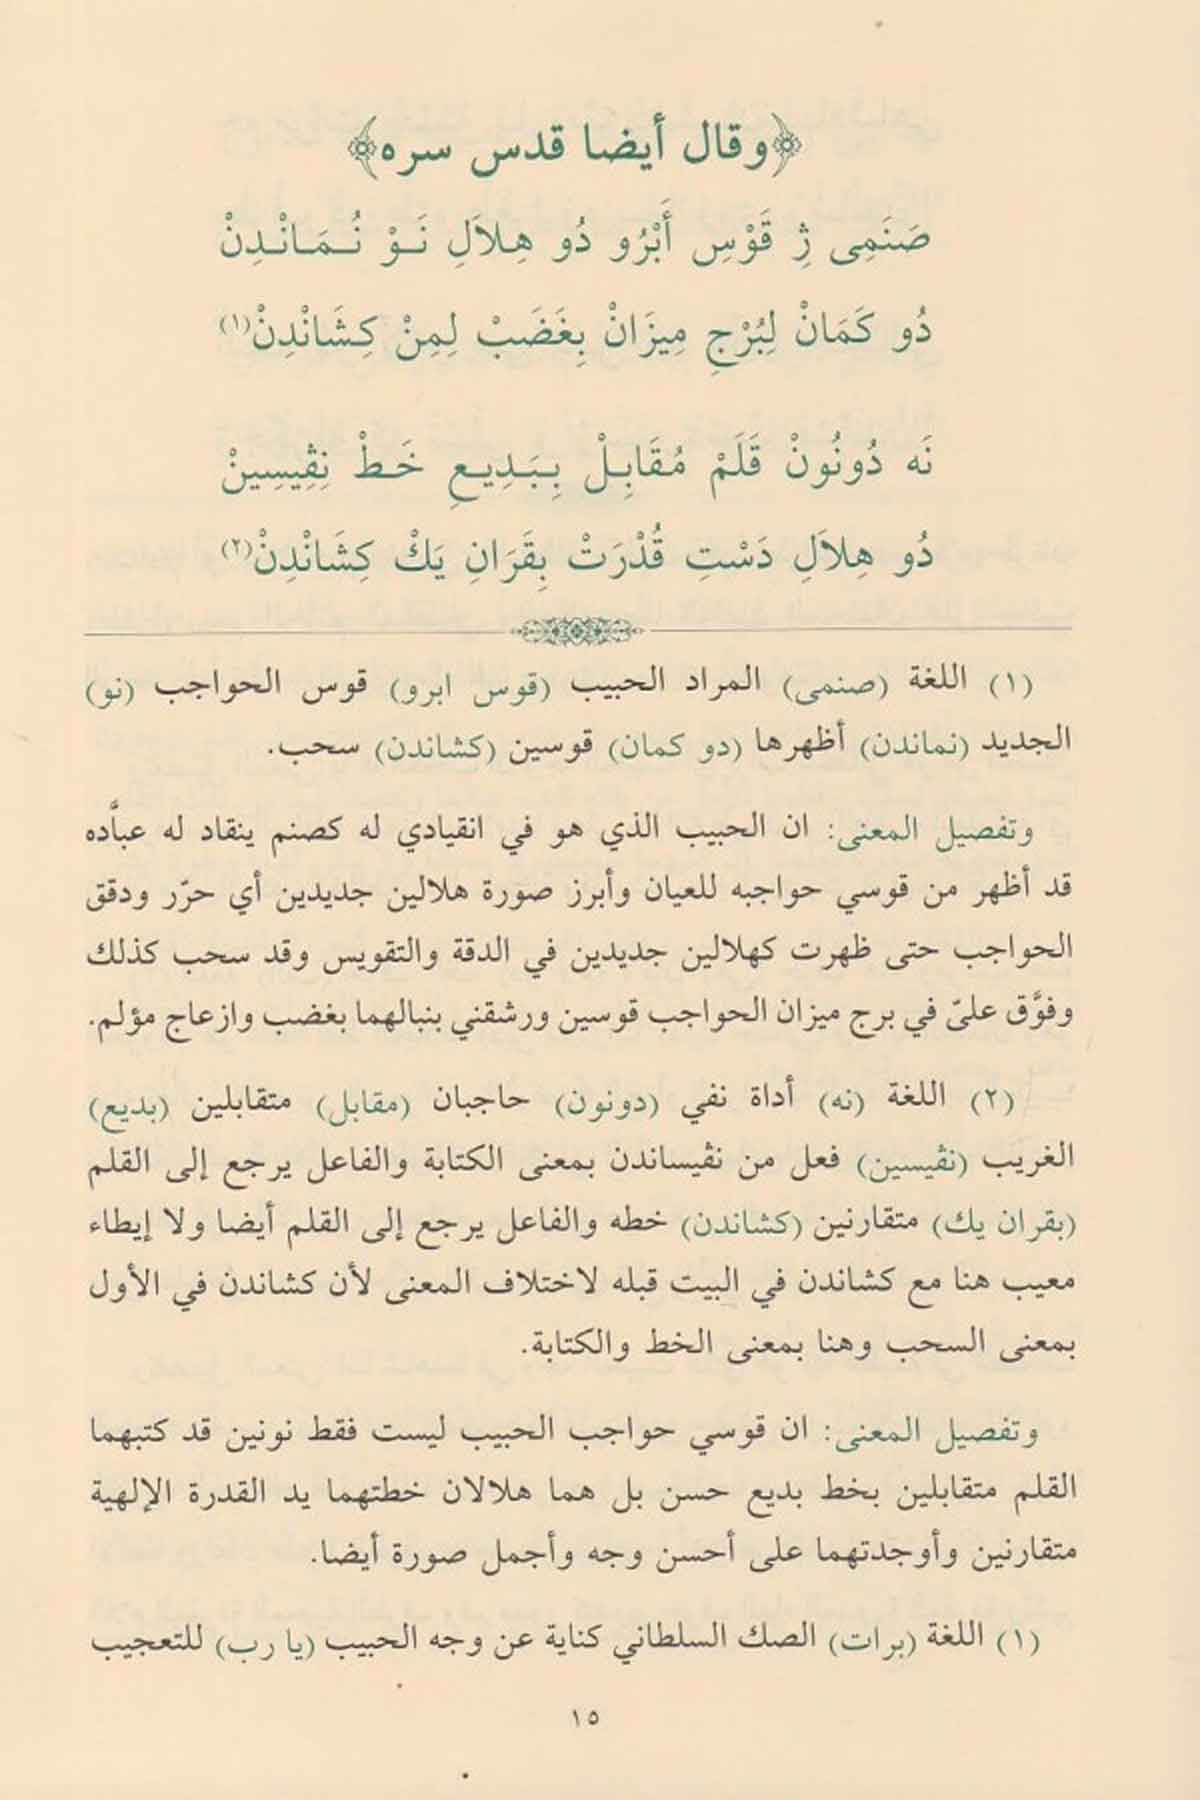 ﴿وقال أيضا قدس سره﴾
صَنَمِى ژِ قَوْسِ أَبْرُو دُو هِلاَلِ نَوْ نُمَانْدِنْ
دُو كَمَانْ لِبُرْجِ مِيزَانْ بِغَضَبْ لِمِنْ كِشَانْدِنْ(١)
نَه دُونُونْ قَلَمْ مُقَابِلْ بِبَدِيعِ خَطْ نِڤِيسِينْ
دُو هِلاَلِ دَسْتِ قُدْرَتْ بِقَرَانِ يَكْ كِشَانْدِنْ(٢)
(١) اللغة (صنمى) المراد الحبيب (قوس ابرو) قوس الحواجب (نو)
الجديد (نماندن) أظهرها (دو كمان) قوسين (كشاندن) سحب.
وتفصيل المعنى: ان الحبيب الذي هو في انقيادي له كصنم ينقاد له عبَّاده
قد أظهر من قوسي حواجبه للعيان وأبرز صورة هلالين جديدين أي حرّر ودقق
الحواجب حتى ظهرت كهلالين جديدين في الدقة والتقويس وقد سحب كذلك
وفوَّق علىّ في برج ميزان الحواجب قوسين ورشقني بنبالهما بغضب وازعاج مؤلم.
(٢) اللغة (نه) أداة نفي (دونون) حاجبان (مقابل) متقابلين (بديع)
الغريب (نڤيسين) فعل من نڤيساندن بمعنى الكتابة والفاعل يرجع إلى القلم
(بقران يك) متقارنين (كشاندن) خطه والفاعل يرجع إلى القلم أيضا ولا إيطاء
معيب هنا مع كشاندن في البيت قبله لاختلاف المعنى لأن كشاندن في الأول
بمعنى السحب وهنا بمعنى الخط والكتابة.
وتفصيل المعنى: ان قوسي حواجب الحبيب ليست فقط نونين قد كتبهما
القلم متقابلين بخط بديع حسن بل هما هلالان خطتهما يد القدرة الإلهية
متقارنين وأوجدتهما على أحسن وجه وأجمل صورة أيضا.
(١) اللغة (برات) الصك السلطاني كناية عن وجه الحبيب (يا رب) للتعجيب
١٥